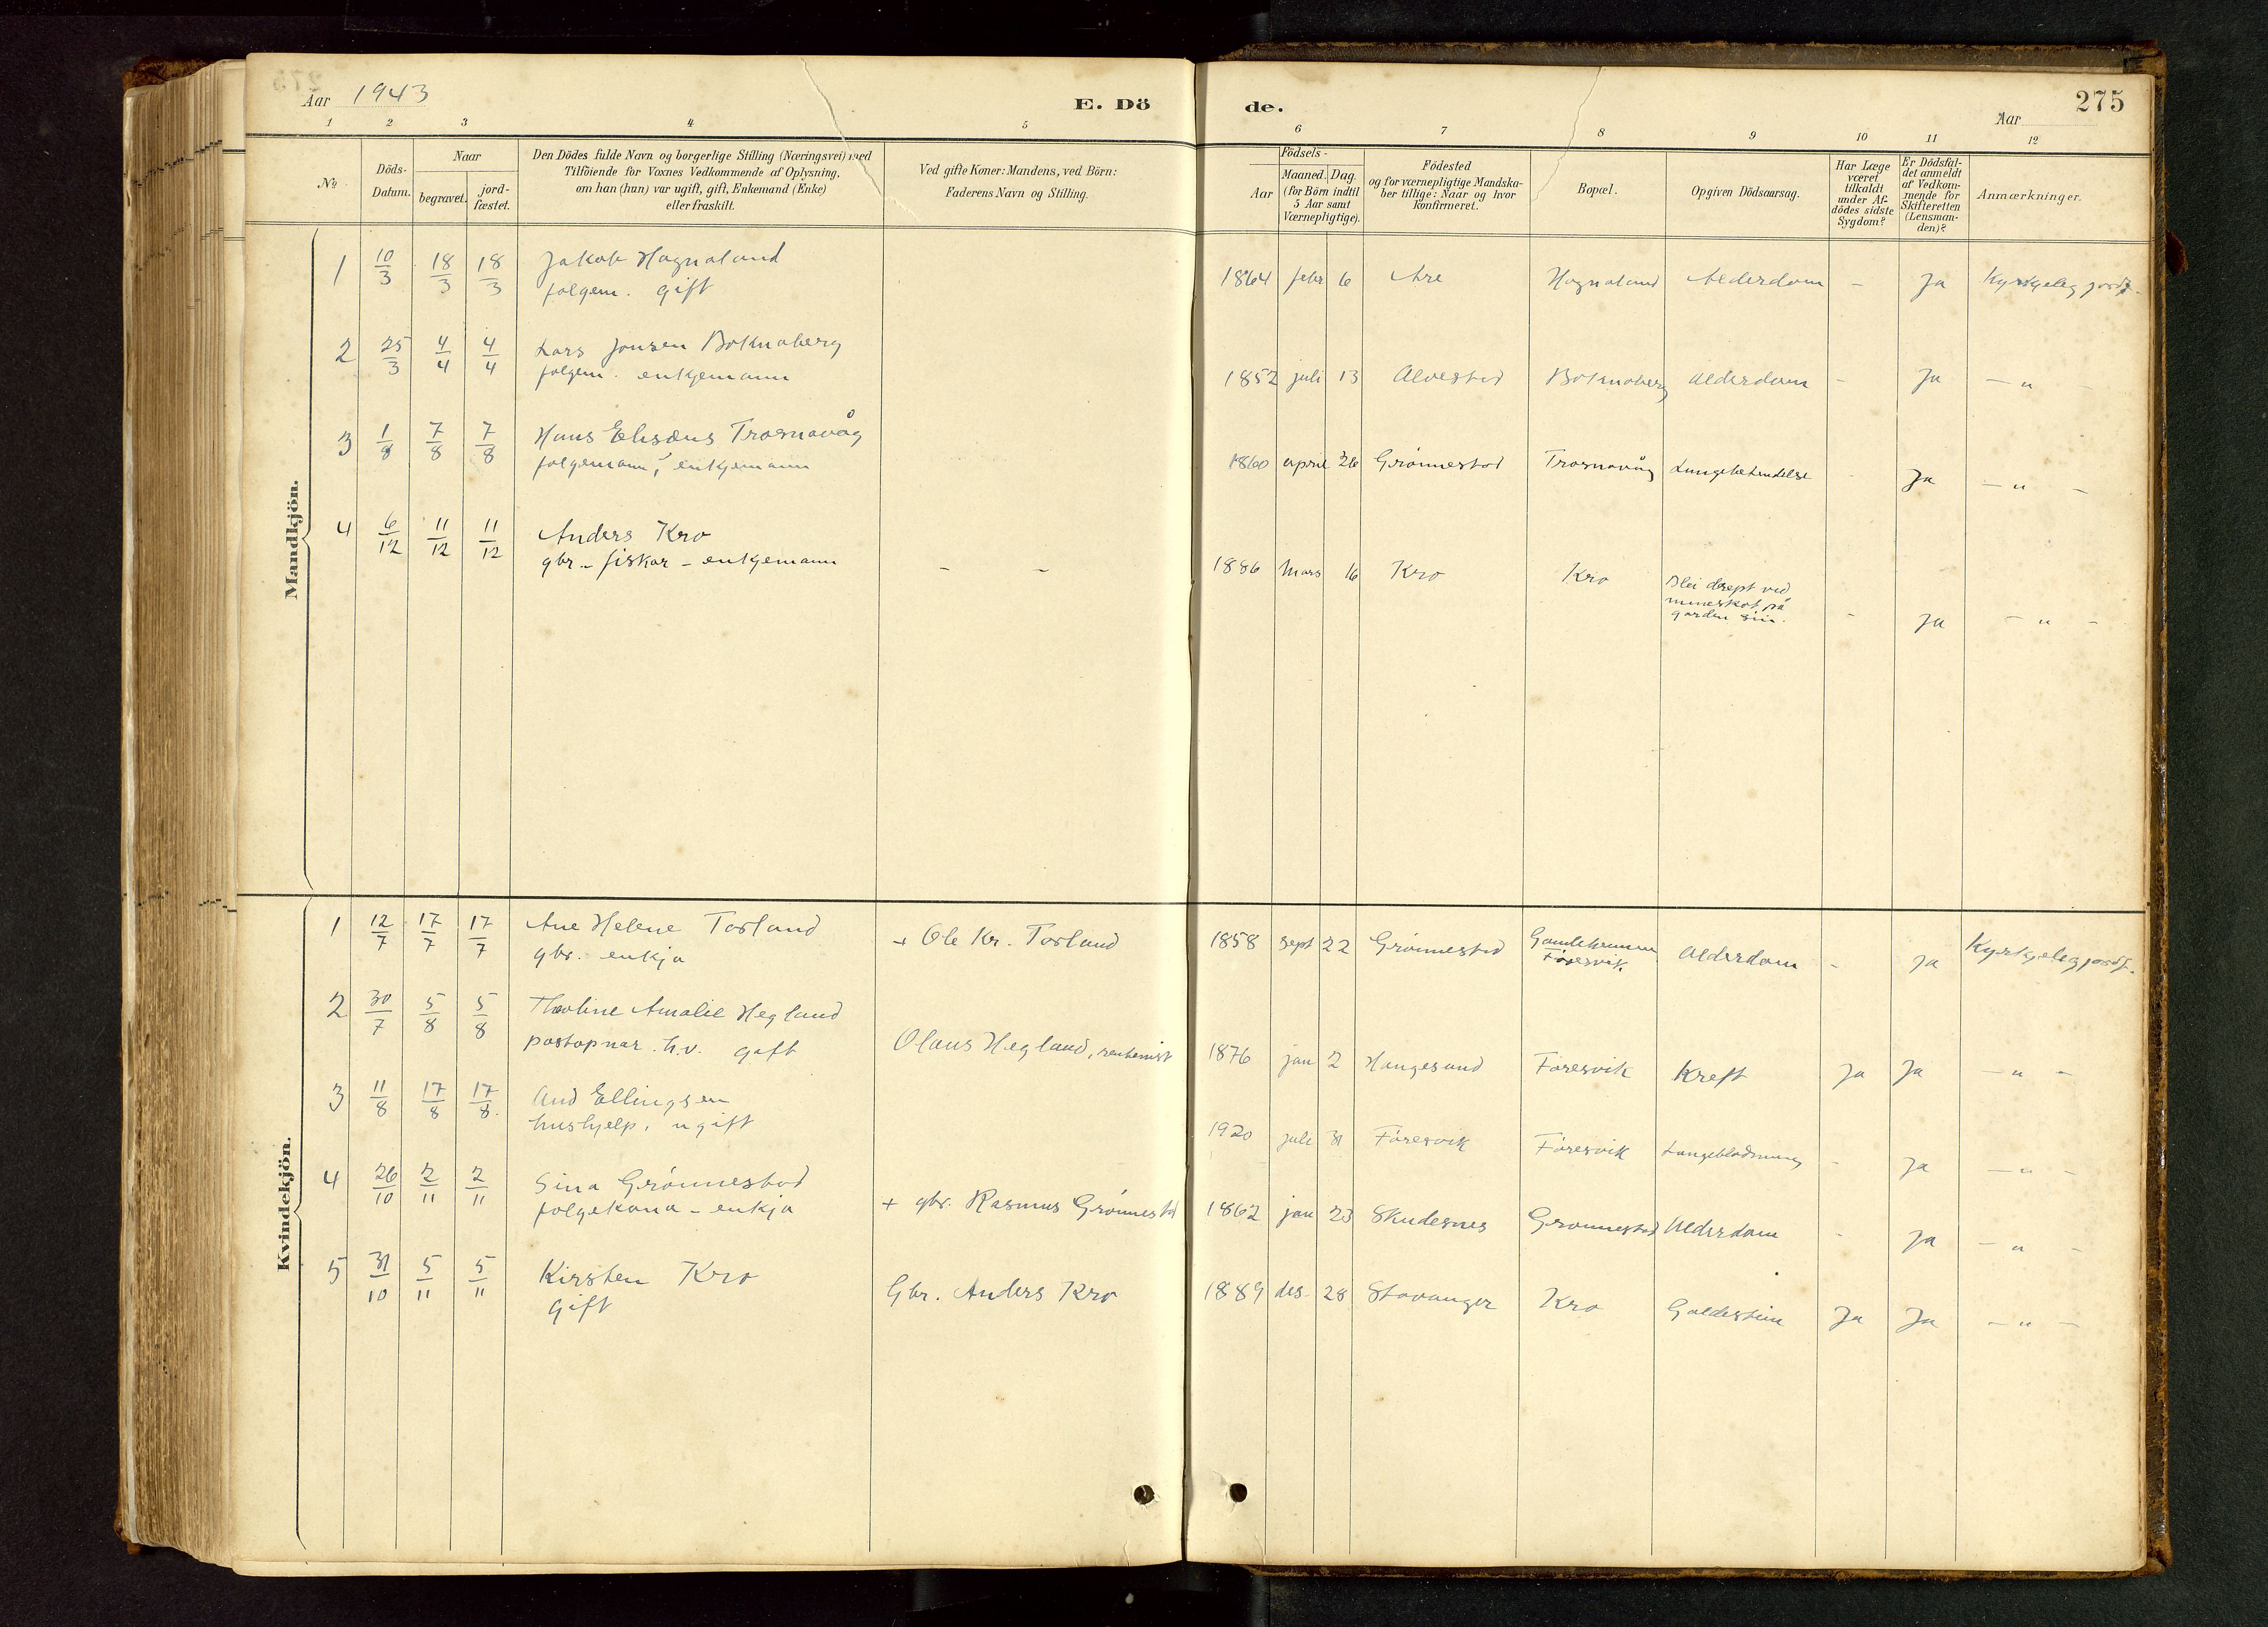 Aar 1943
E. Dö
de.
Aar
275
1 2 3 4 5 6 7 8 9 10 11 12
No.
Döds-Datum.
Naar
begravet.
jord-fæstet.
Den Dödes fulde Navn og borgerlige Stilling (Næringsvei) med
Tilföiende for Voxnes Vedkommende af Oplysning,
om han (hun) var ugift, gift, Enkemand (Enke)
eller fraskilt.
Ved gifte Koner: Mandens, ved Börn:
Faderens Navn og Stilling.
Födsels-
Aar
Maaned. Dag.
(for Börn indtil
5 Aar samt
Værnepligtige).
Födested
og for værnepligtige Mandska-
ber tillige: Naar og hvor
konfirmeret.
Bopæl.
Opgiven Dödsaarsag.
Har Læge
været
tilkaldt
under Af-
dödes sidste
Sygdom?
Er Dödsfal-
det anmeldt
af Vedkom-
mende for
Skifteretten
(Lensman-
den)?
Anmærkninger.
Mandkjön.
1 10/3 18/3 18/3 Jakob Hognaland
folgem. gift
1864 febr 6 Are Hognaland Alderdom - Ja Kyrkjeleg jordf.
2 25/3 4/4 4/4 Lars Jonsen Boknaberg
folgem. enkjemann
1852 juli 13 Alvestad Boknaberg Alderdom - Ja - " -
3 1/8 7/8 7/8 Hans Elisæus Trosnavåg
folgemann, enkjemann
1860 april 26 Grønnestad Trosnavåg Lungebetendelse - Ja - " -
4 6/12 11/12 11/12 Anders Kro
gbr. - fiskar - enkjemann - -
1886 Mars 16 Kro Kro Blei drept ved
mineskot på
garden sin.
- Ja - " -
Kvindekjön.
1 12/7 17/7 17/7 Ane Helene Torland
gbr. enkja
+ Ole Kr. Torland
1858 sept 22 Grønnestad Gamleheimen
Føresvik. Alderdom - Ja Kyrkjeleg jordf.
2 30/7 5/8 5/8 Amalie Hegland
postopnar. h.v. gift
Olaus Hegland,
1876 jan 2 Haugesund Føresvik Kreft Ja Ja - " -
3 11/8 17/8 17/8. Aud Ellingsen
hushjelp. ugift
1920 juli 31 Føresvik Føresvik Lungeblødning - Ja - " -
4 26/10 2/11 2/11 Sina Grønnestad
folgekona - enkja
+ gbr. Rasmus Grønnestad
1862 jan 23 Skudesnes Grønnestad Alderdom - Ja - " -
5 31/10 5/11 5/11 Kirsten Kro
gift
Gbr. Anders Kro
1889 des. 28 Stavanger Kro Galdestein Ja Ja - " -